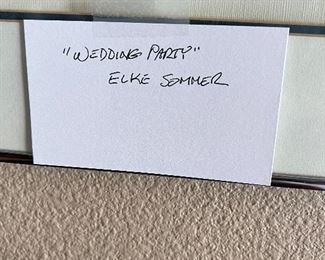 "WEDDING PARTY"
ELKE SOMMER